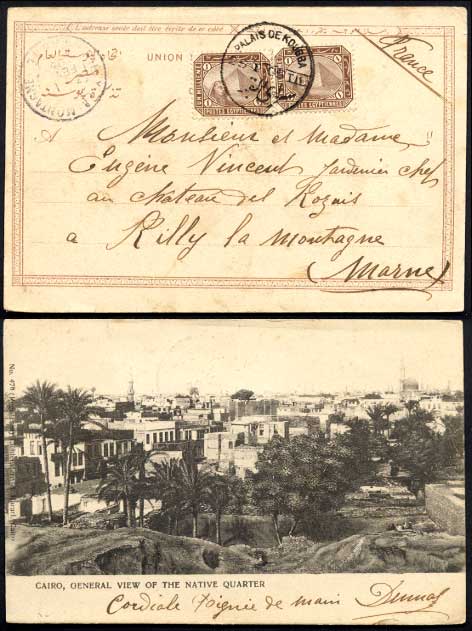 L'adresse seule doit être écrite de ce côté
UNION
France
PALAIS DE KOUBBA
1 POSTES EGYPTIENNES 1
1 POSTES EGYPTIENNES 1
LA MONTAGNE
A Monsieur et Madame
Eugène Vincent Jardinier chef
au chateau des Rozais
a Rilly la Montagne
(Marne)
No. 478
CAIRO, GENERAL VIEW OF THE NATIVE QUARTER
Cordiale Poignée de main Dumas